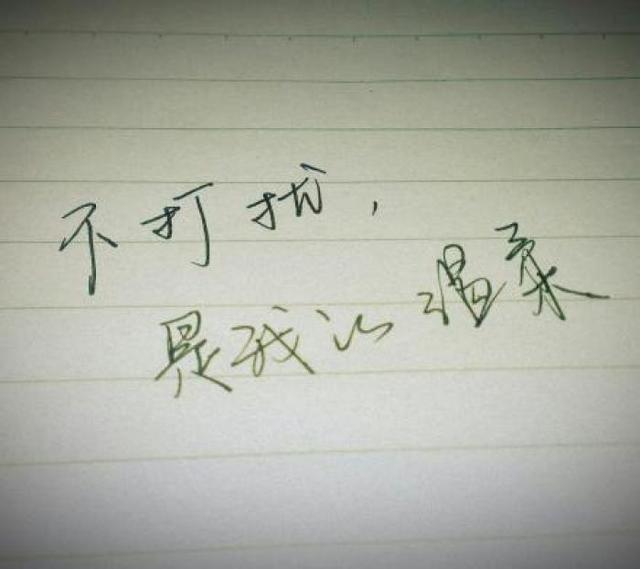 不打扰，
是我以温柔